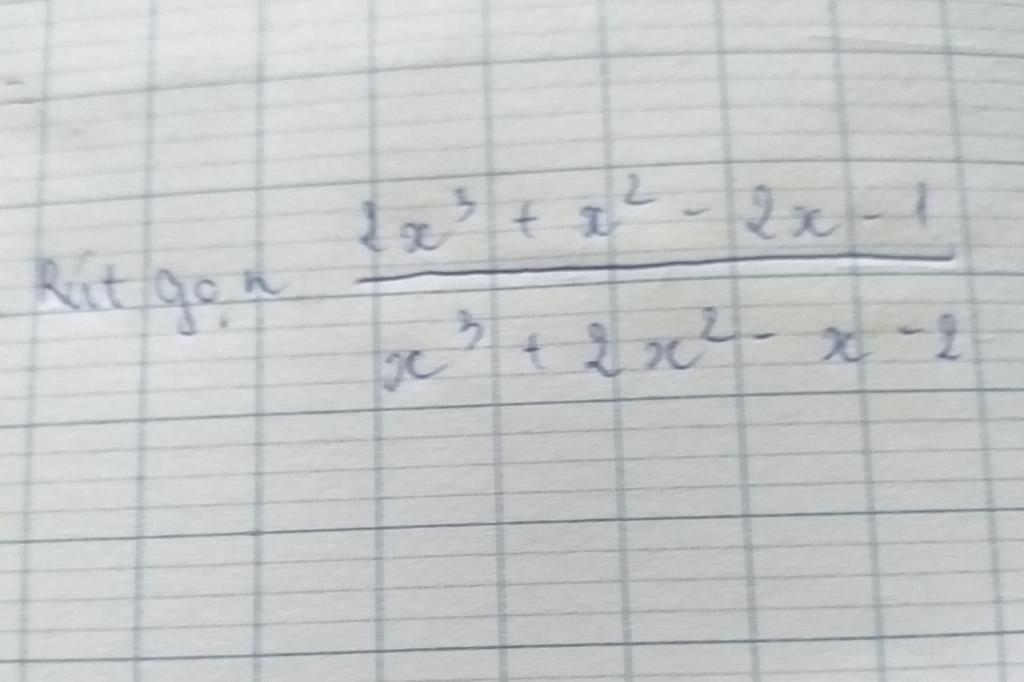 Rút gọn \frac{2x^3 + x^2 - 2x - 1}{x^3 + 2x^2 - x - 2}